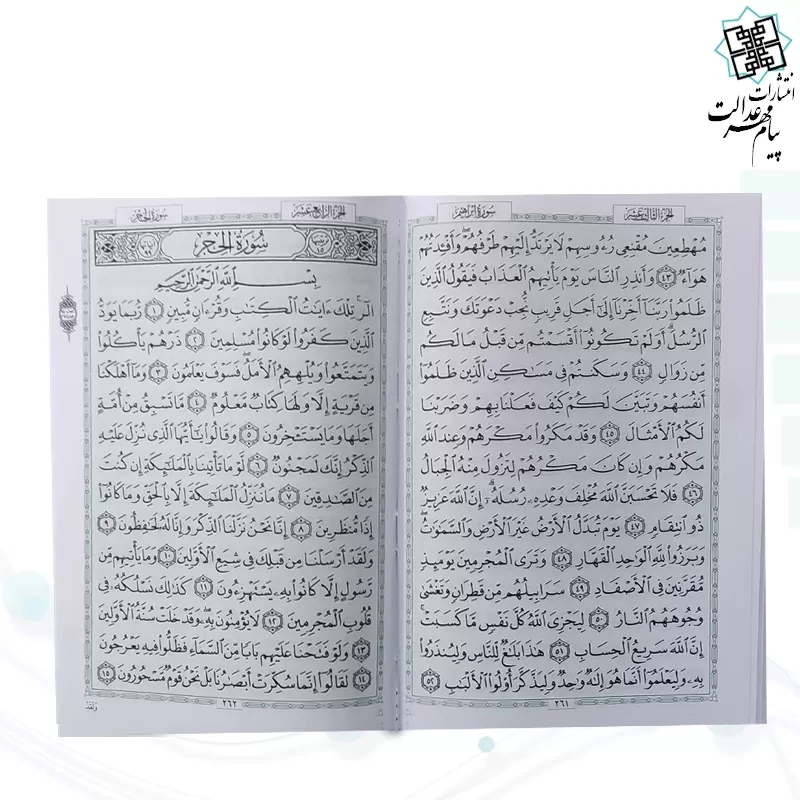 انتشارات
پیام مهر عدالت
الجزء الثالث عشر
سورة إبراهيم
مُهْطِعِينَ مُقْنِعِي رُءُوسِهِمْ لَا يَرْتَدُّ إِلَيْهِمْ طَرْفُهُمْ وَأَفْئِدَتُهُمْ
هَوَاءٌ ٤٣ وَأَنذِرِ النَّاسَ يَوْمَ يَأْتِيهِمُ الْعَذَابُ فَيَقُولُ الَّذِينَ
ظَلَمُوا رَبَّنَا أَخِّرْنَا إِلَىٰ أَجَلٍ قَرِيبٍ نُّجِبْ دَعْوَتَكَ وَنَتَّبِعِ
الرُّسُلَ أَوَلَمْ تَكُونُوا أَقْسَمْتُم مِّن قَبْلُ مَا لَكُم
مِّن زَوَالٍ ٤٤ وَسَكَنتُمْ فِي مَسَاكِنِ الَّذِينَ ظَلَمُوا
أَنفُسَهُمْ وَتَبَيَّنَ لَكُمْ كَيْفَ فَعَلْنَا بِهِمْ وَضَرَبْنَا
لَكُمُ الْأَمْثَالَ ٤٥ وَقَدْ مَكَرُوا مَكْرَهُمْ وَعِندَ اللَّهِ
مَكْرُهُمْ وَإِن كَانَ مَكْرُهُمْ لِتَزُولَ مِنْهُ الْجِبَالُ
٤٦ فَلَا تَحْسَبَنَّ اللَّهَ مُخْلِفَ وَعْدِهِ رُسُلَهُ إِنَّ اللَّهَ عَزِيزٌ
ذُو انتِقَامٍ ٤٧ يَوْمَ تُبَدَّلُ الْأَرْضُ غَيْرَ الْأَرْضِ وَالسَّمَٰوَٰتُ
وَبَرَزُوا لِلَّهِ الْوَاحِدِ الْقَهَّارِ ٤٨ وَتَرَى الْمُجْرِمِينَ يَوْمَئِذٍ
مُّقَرَّنِينَ فِي الْأَصْفَادِ ٤٩ سَرَابِيلُهُم مِّن قَطِرَانٍ وَتَغْشَىٰ
وُجُوهَهُمُ النَّارُ ٥٠ لِيَجْزِيَ اللَّهُ كُلَّ نَفْسٍ مَّا كَسَبَتْ
إِنَّ اللَّهَ سَرِيعُ الْحِسَابِ ٥١ هَٰذَا بَلَٰغٌ لِّلنَّاسِ وَلِيُنذَرُوا
بِهِ وَلِيَعْلَمُوا أَنَّمَا هُوَ إِلَٰهٌ وَٰحِدٌ وَلِيَذَّكَّرَ أُولُوا الْأَلْبَٰبِ ٥٢
٢٦١
الجزء الرابع عشر
سورة الحجر
سُورَةُ الْحِجْرِ
بِسْمِ اللَّهِ الرَّحْمَٰنِ الرَّحِيمِ
الر تِلْكَ ءَايَٰتُ الْكِتَٰبِ وَقُرْءَانٍ مُّبِينٍ ١ رُّبَمَا يَوَدُّ
الَّذِينَ كَفَرُوا لَوْ كَانُوا مُسْلِمِينَ ٢ ذَرْهُمْ يَأْكُلُوا
وَيَتَمَتَّعُوا وَيُلْهِهِمُ الْأَمَلُ فَسَوْفَ يَعْلَمُونَ ٣ وَمَا أَهْلَكْنَا
مِن قَرْيَةٍ إِلَّا وَلَهَا كِتَابٌ مَّعْلُومٌ ٤ مَّا تَسْبِقُ مِنْ أُمَّةٍ
أَجَلَهَا وَمَا يَسْتَـْٔخِرُونَ ٥ وَقَالُوا يَٰأَيُّهَا الَّذِي نُزِّلَ عَلَيْهِ
الذِّكْرُ إِنَّكَ لَمَجْنُونٌ ٦ لَّوْ مَا تَأْتِينَا بِالْمَلَٰئِكَةِ إِن كُنتَ
مِنَ الصَّٰدِقِينَ ٧ مَا نُنَزِّلُ الْمَلَٰئِكَةَ إِلَّا بِالْحَقِّ وَمَا كَانُوا
إِذًا مُّنظَرِينَ ٨ إِنَّا نَحْنُ نَزَّلْنَا الذِّكْرَ وَإِنَّا لَهُ لَحَٰفِظُونَ ٩
وَلَقَدْ أَرْسَلْنَا مِن قَبْلِكَ فِي شِيَعِ الْأَوَّلِينَ ١٠ وَمَا يَأْتِيهِم مِّن
رَّسُولٍ إِلَّا كَانُوا بِهِ يَسْتَهْزِءُونَ ١١ كَذَٰلِكَ نَسْلُكُهُ فِي
قُلُوبِ الْمُجْرِمِينَ ١٢ لَا يُؤْمِنُونَ بِهِ وَقَدْ خَلَتْ سُنَّةُ الْأَوَّلِينَ
١٣ وَلَوْ فَتَحْنَا عَلَيْهِم بَابًا مِّنَ السَّمَاءِ فَظَلُّوا فِيهِ يَعْرُجُونَ
١٤ لَقَالُوا إِنَّمَا سُكِّرَتْ أَبْصَٰرُنَا بَلْ نَحْنُ قَوْمٌ مَّسْحُورُونَ ١٥
٢٦٢
وَلَقَدْ